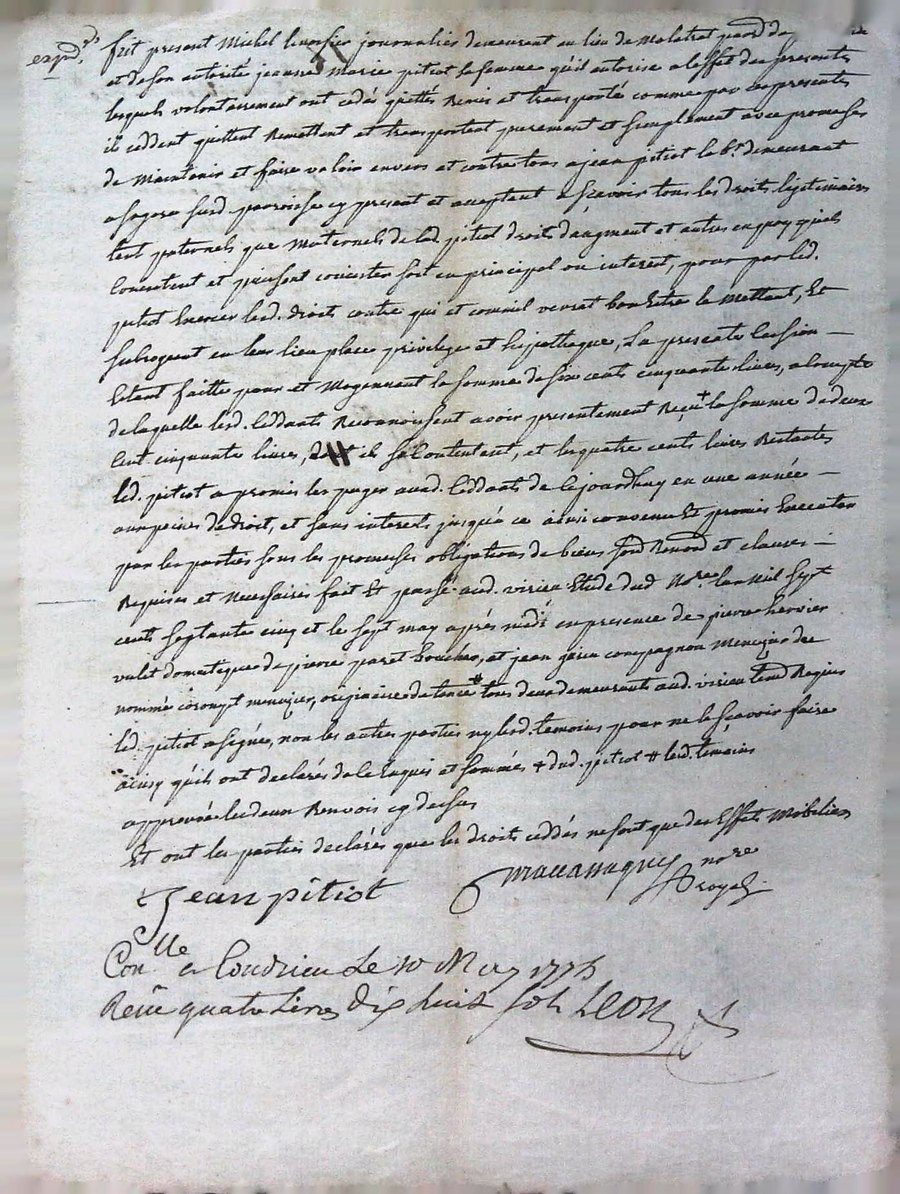 expd.
fut present Michel journalier demeurant au lieu de Malatrat par de
et de son autorité jeanne Marie pitiot sa femme qu'il autorise a leffet des presentes
lesquels volontairement ont cédés quittés Remis et transporté comme par ces presentes
ils ceddent quittent Remettent et transportent purement et simplement avec promesses
de Maintenir et faire valoir envers et contre tous a jean pitiot le b.r demeurant
a surd parroisse cy present et acceptant a sçavoir tous les droits légitimaires
tant paternels que Maternels de lad. pitiot droits d'augment et autres en quoy quils
Consistent et puissent consister soit en principal ou interest, pour par led.
pitiot Exercer lesd. droits contre qui et comme il verrat bon Estre le Mettant, Et
subrogeant en leur lieu place privilege et hipotheque, La presente Cession —
Estant faitte pour et Moyennant la somme de six cents cinquante livres, a Compte
de laquelle lesd. Ceddants Reconnoissent avoir presentement Reçu + la somme de deux
Cent cinquante livres, dont ils se Contentent, et les quatre cents livres Restantes
led. pitiot a promis les payer auxd. Ceddants de Cejourdhuy en une année —
aux peines de droit, et sans interets jusqu'a ce ainsi convenu Et promis Executer
par les parties sous les promesses obligations de biens soud Renond et clauses —
Requises et Necessaires fait Et passé aud. virieu Etude dud Nore lan Mil sept
cents septante cinq et le sept may après midi en presence de pierre hervier
valet domestique de pierre paret boucher, et jean compagnon Menuizier de
nommé menuizier, originaire de tence # tous deux demeurants aud. virieu temd Requis
led. pitiot a signé, non les autres parties ny lesd. temoins pour ne le sçavoir faire
ainsy quils ont déclarés de ce Enquis et sommés + dud. pitiot # lesd. temoins
approuvée les deux Renvois cy dessus
Et ont les parties declarés que les droits ceddés ne sont que des Effets Mobiliers
Jean pitiot
nore
royal
Con.lle a Condrieu Le 10 May 1775
Reçu quatre Livres dix huit sols Leon